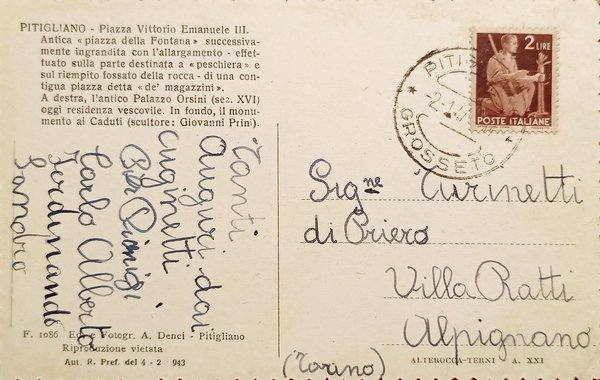 PITIGLIANO - Piazza Vittorio Emanuele III.
Antica «piazza della Fontana» successiva-
mente ingrandita con l'allargamento - effet-
tuato sulla parte destinata a «peschiera» e
sul riempito fossato della rocca - di una con-
tigua piazza detta «de' magazzini».
A destra, l'antico Palazzo Orsini (sec. XVI)
oggi residenza vescovile. In fondo, il monu-
mento ai Caduti (scultore: Giovanni Prini).
Tanti
Auguri dai
cuginetti
Pier Dionigi
Carlo Alberto
Ferdinando
Sandro
F. 1086 Ed. e Fotogr. A. Denci - Pitigliano
Riproduzione vietata
Aut. R. Pref. del 4 - 2 - 943
2 LIRE
POSTE ITALIANE
GROSSETO
Signe Curinetti
di Priero
Villa Ratti
Alpignano
(Torino)
ALTEROCCA-TERNI A. XXI